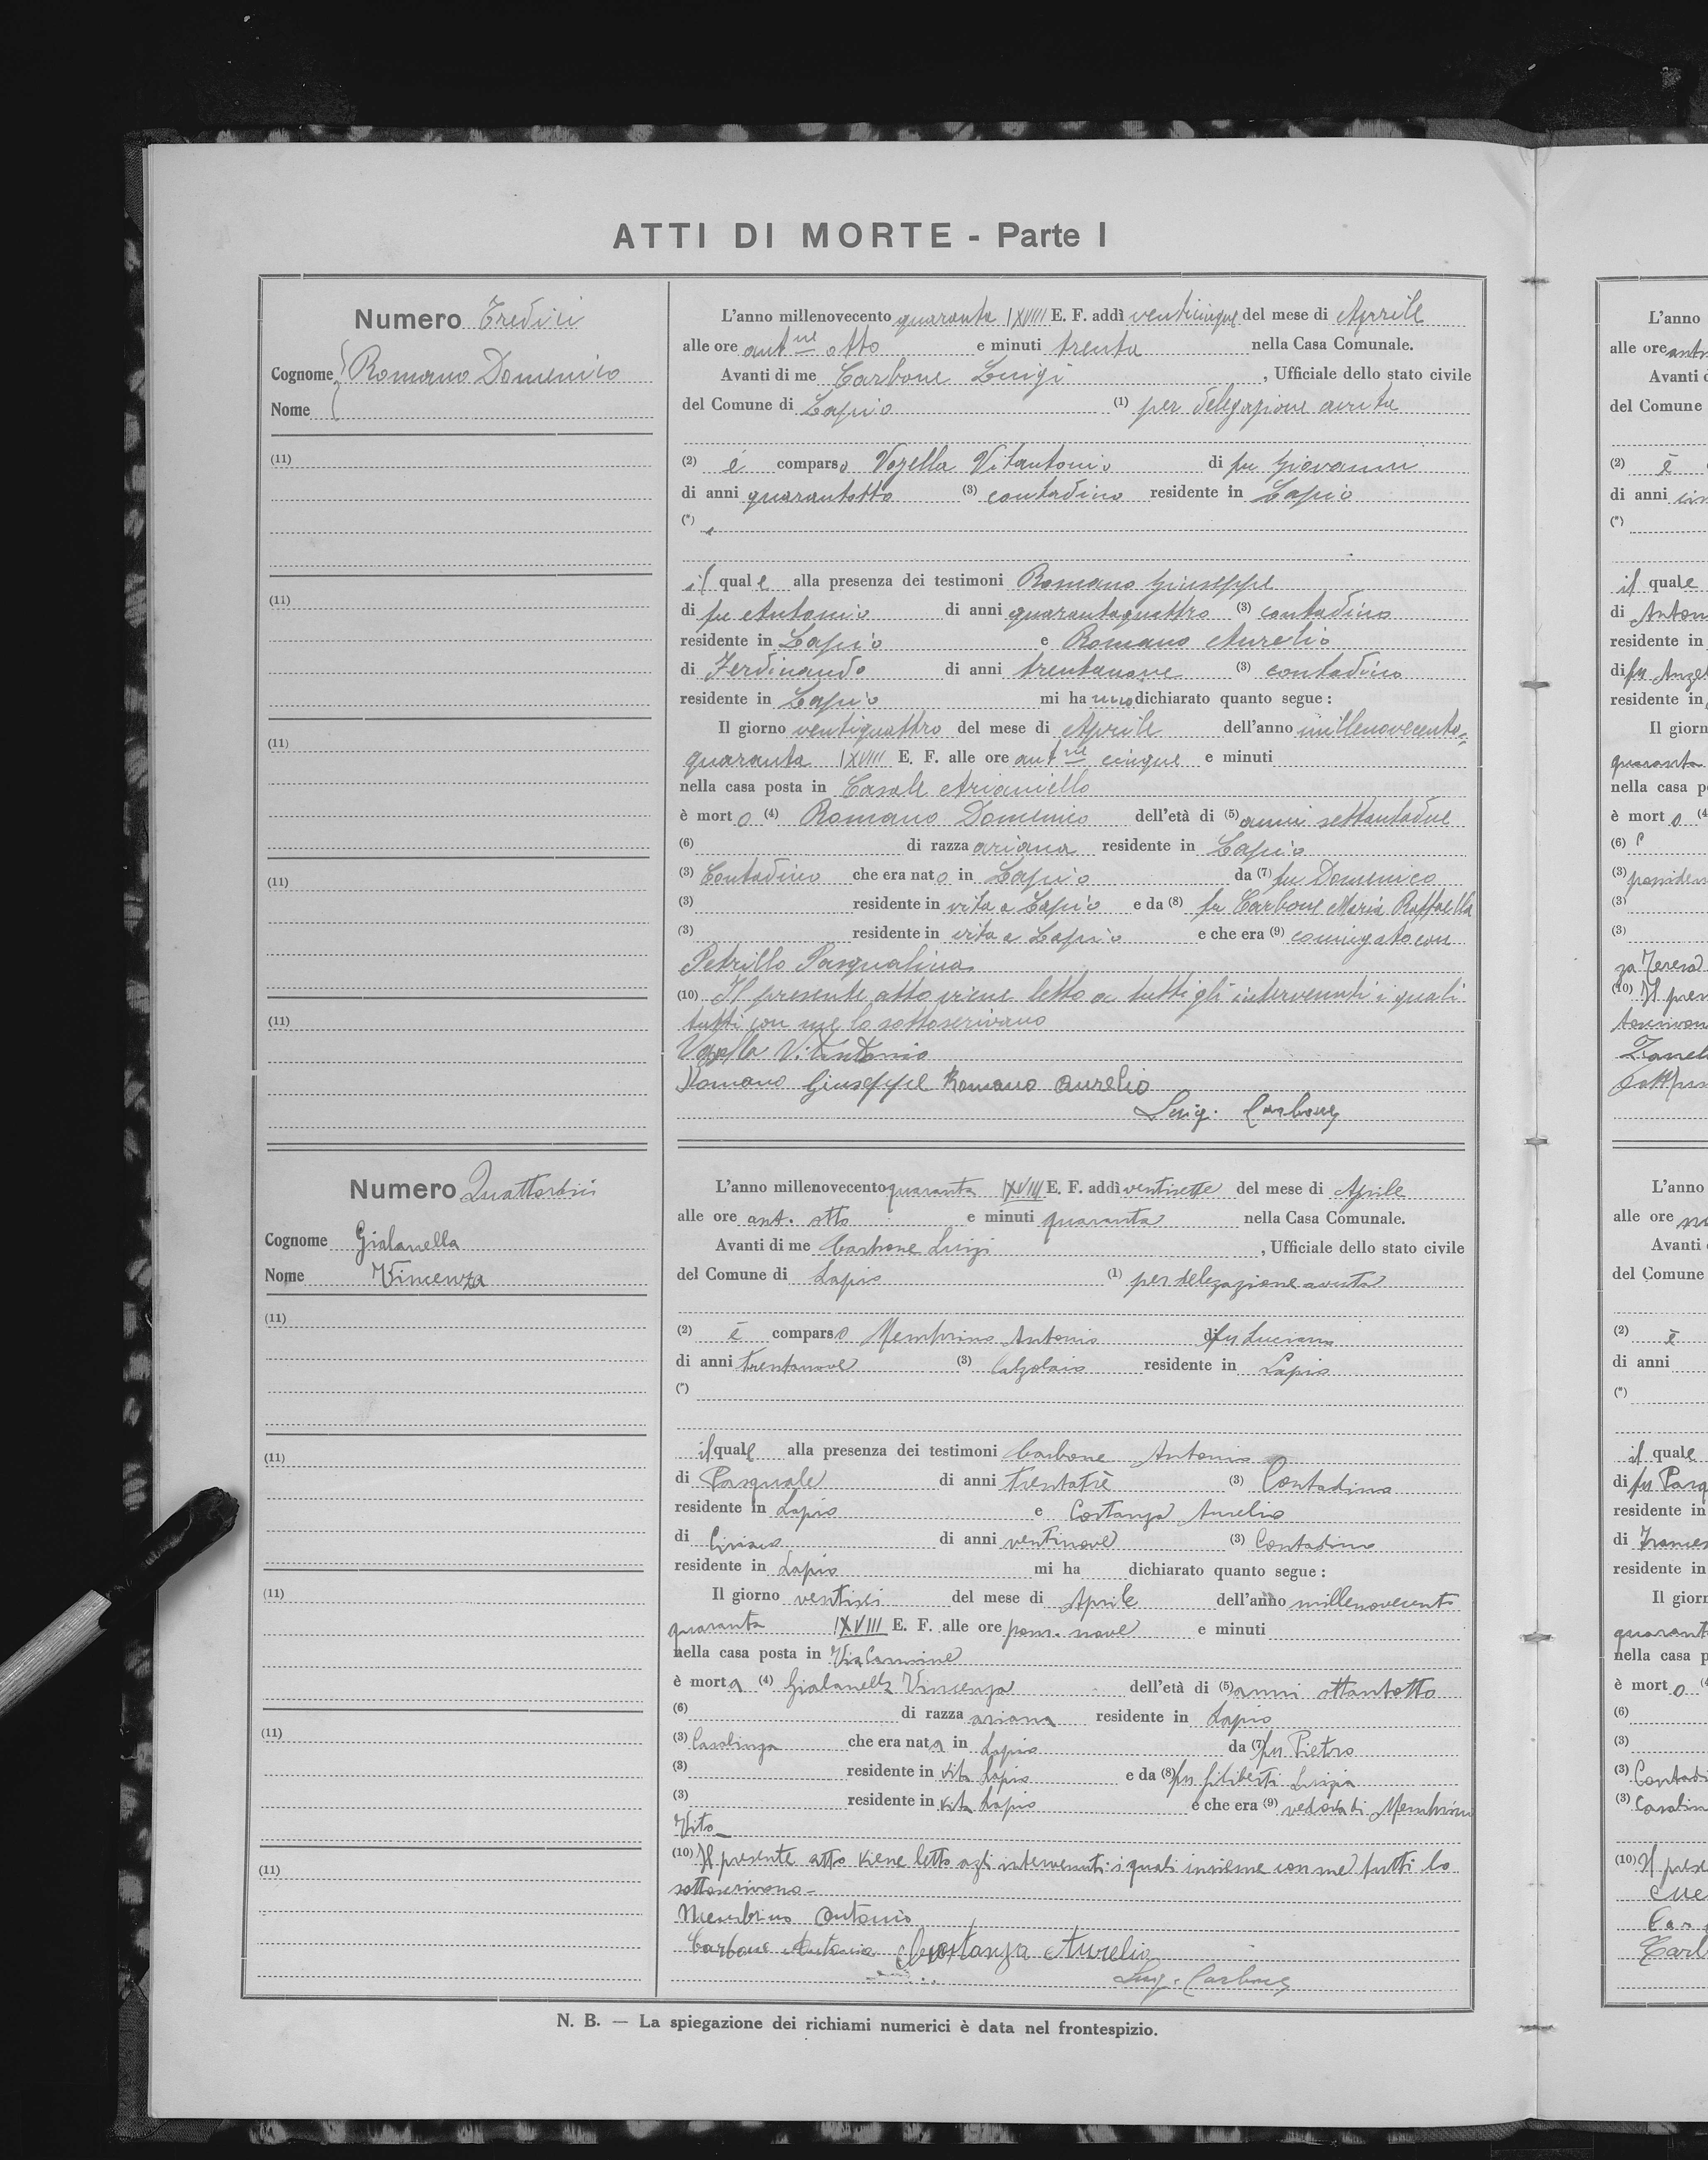 ATTI DI MORTE - Parte I
Numero Tredici
Cognome Romano Domenico
Nome
(11)
(11)
(11)
(11)
(11)
L'anno millenovecento quaranta XVIII E. F. addì venticinque del mese di Aprile
alle ore antne otto e minuti trenta nella Casa Comunale.
Avanti di me Carbone Luigi, Ufficiale dello stato civile
del Comune di Lapio (1) per delegazione avuta
(2) è comparso Vozella Vitantonio di fu Giovanni
di anni quarantotto (3) contadino residente in Lapio
(*)
il quale alla presenza dei testimoni Romano Giuseppe
di fu Antonio di anni quarantaquattro (3) contadino
residente in Lapio e Romano Aurelio
di Ferdinando di anni trentanove (3) contadino
residente in Lapio mi ha dichiarato quanto segue:
Il giorno ventiquattro del mese di Aprile dell'anno millenovecento=
quaranta XVIII E. F. alle ore antne cinque e minuti
nella casa posta in Casale Arianiello
è morto (4) Romano Domenico dell'età di (5) anni settantadue
(6) di razza ariana residente in Lapio
(3) Contadino che era nato in Lapio da (7) fu Domenico
(3) residente in vita a Lapio e da (8) fu Carbone Maria Raffaella
(3) residente in vita a Lapio e che era (9) coniugato con
Petrillo Pasqualina
(10) Il presente atto viene letto a tutti gli intervenuti i quali
tutti con me lo sottoscrivono
Vozella Vitantonio
Romano Giuseppe Romano Aurelio
Luigi Carbone
Numero Quattordici
Cognome Gialanella
Nome Vincenza
(11)
(11)
(11)
(11)
(11)
L'anno millenovecento quaranta XVIII E. F. addì ventisette del mese di Aprile
alle ore ant. otto e minuti quaranta nella Casa Comunale.
Avanti di me Carbone Luigi, Ufficiale dello stato civile
del Comune di Lapio (1) per delegazione avuta
(2) è comparso Membrino Antonio di fu Luciano
di anni trentanove (3) Calzolaio residente in Lapio
(*)
il quale alla presenza dei testimoni Carbone Antonio
di Pasquale di anni trentatrè (3) Contadino
residente in Lapio e Costanza Aurelio
di Ciriaco di anni ventinove (3) Contadino
residente in Lapio mi ha dichiarato quanto segue:
Il giorno ventisei del mese di Aprile dell'anno millenovecento
quaranta XVIII E. F. alle ore pom. nove e minuti
nella casa posta in Via Carmine
è morta (4) Gialanella Vincenza dell'età di (5) anni ottantotto
(6) di razza ariana residente in Lapio
(3) Casalinga che era nata in Lapio da (7) fu Pietro
(3) residente in vita Lapio e da (8) fu Filiberti Luigia
(3) residente in vita Lapio e che era (9) vedova di Membrino
Vito
(10) Il presente atto viene letto agli intervenuti i quali insieme con me tutti lo
sottoscrivono-
Membrino Antonio
Carbone Antonio Costanza Aurelio
Luigi Carbone
N. B. — La spiegazione dei richiami numerici è data nel frontespizio.
L'anno
alle ore
Avanti
del Comune
(2) è
di anni
(*)
il quale
di Anton
residente in
di fu Angel
residente in
Il giorn
quaranta
nella casa p
è morto (4
(6)
(3)
(3)
(3)
za Teresa
(10) Il pres
L'anno
alle ore
Avanti
del Comune
(2) è
di anni
(*)
il quale
di fu Pasq
residente in
di Frances
residente in
Il giorn
quarant
nella casa p
è morto (4
(6)
(3)
(3) Contadi
(3) Casalin
(10) Il prese